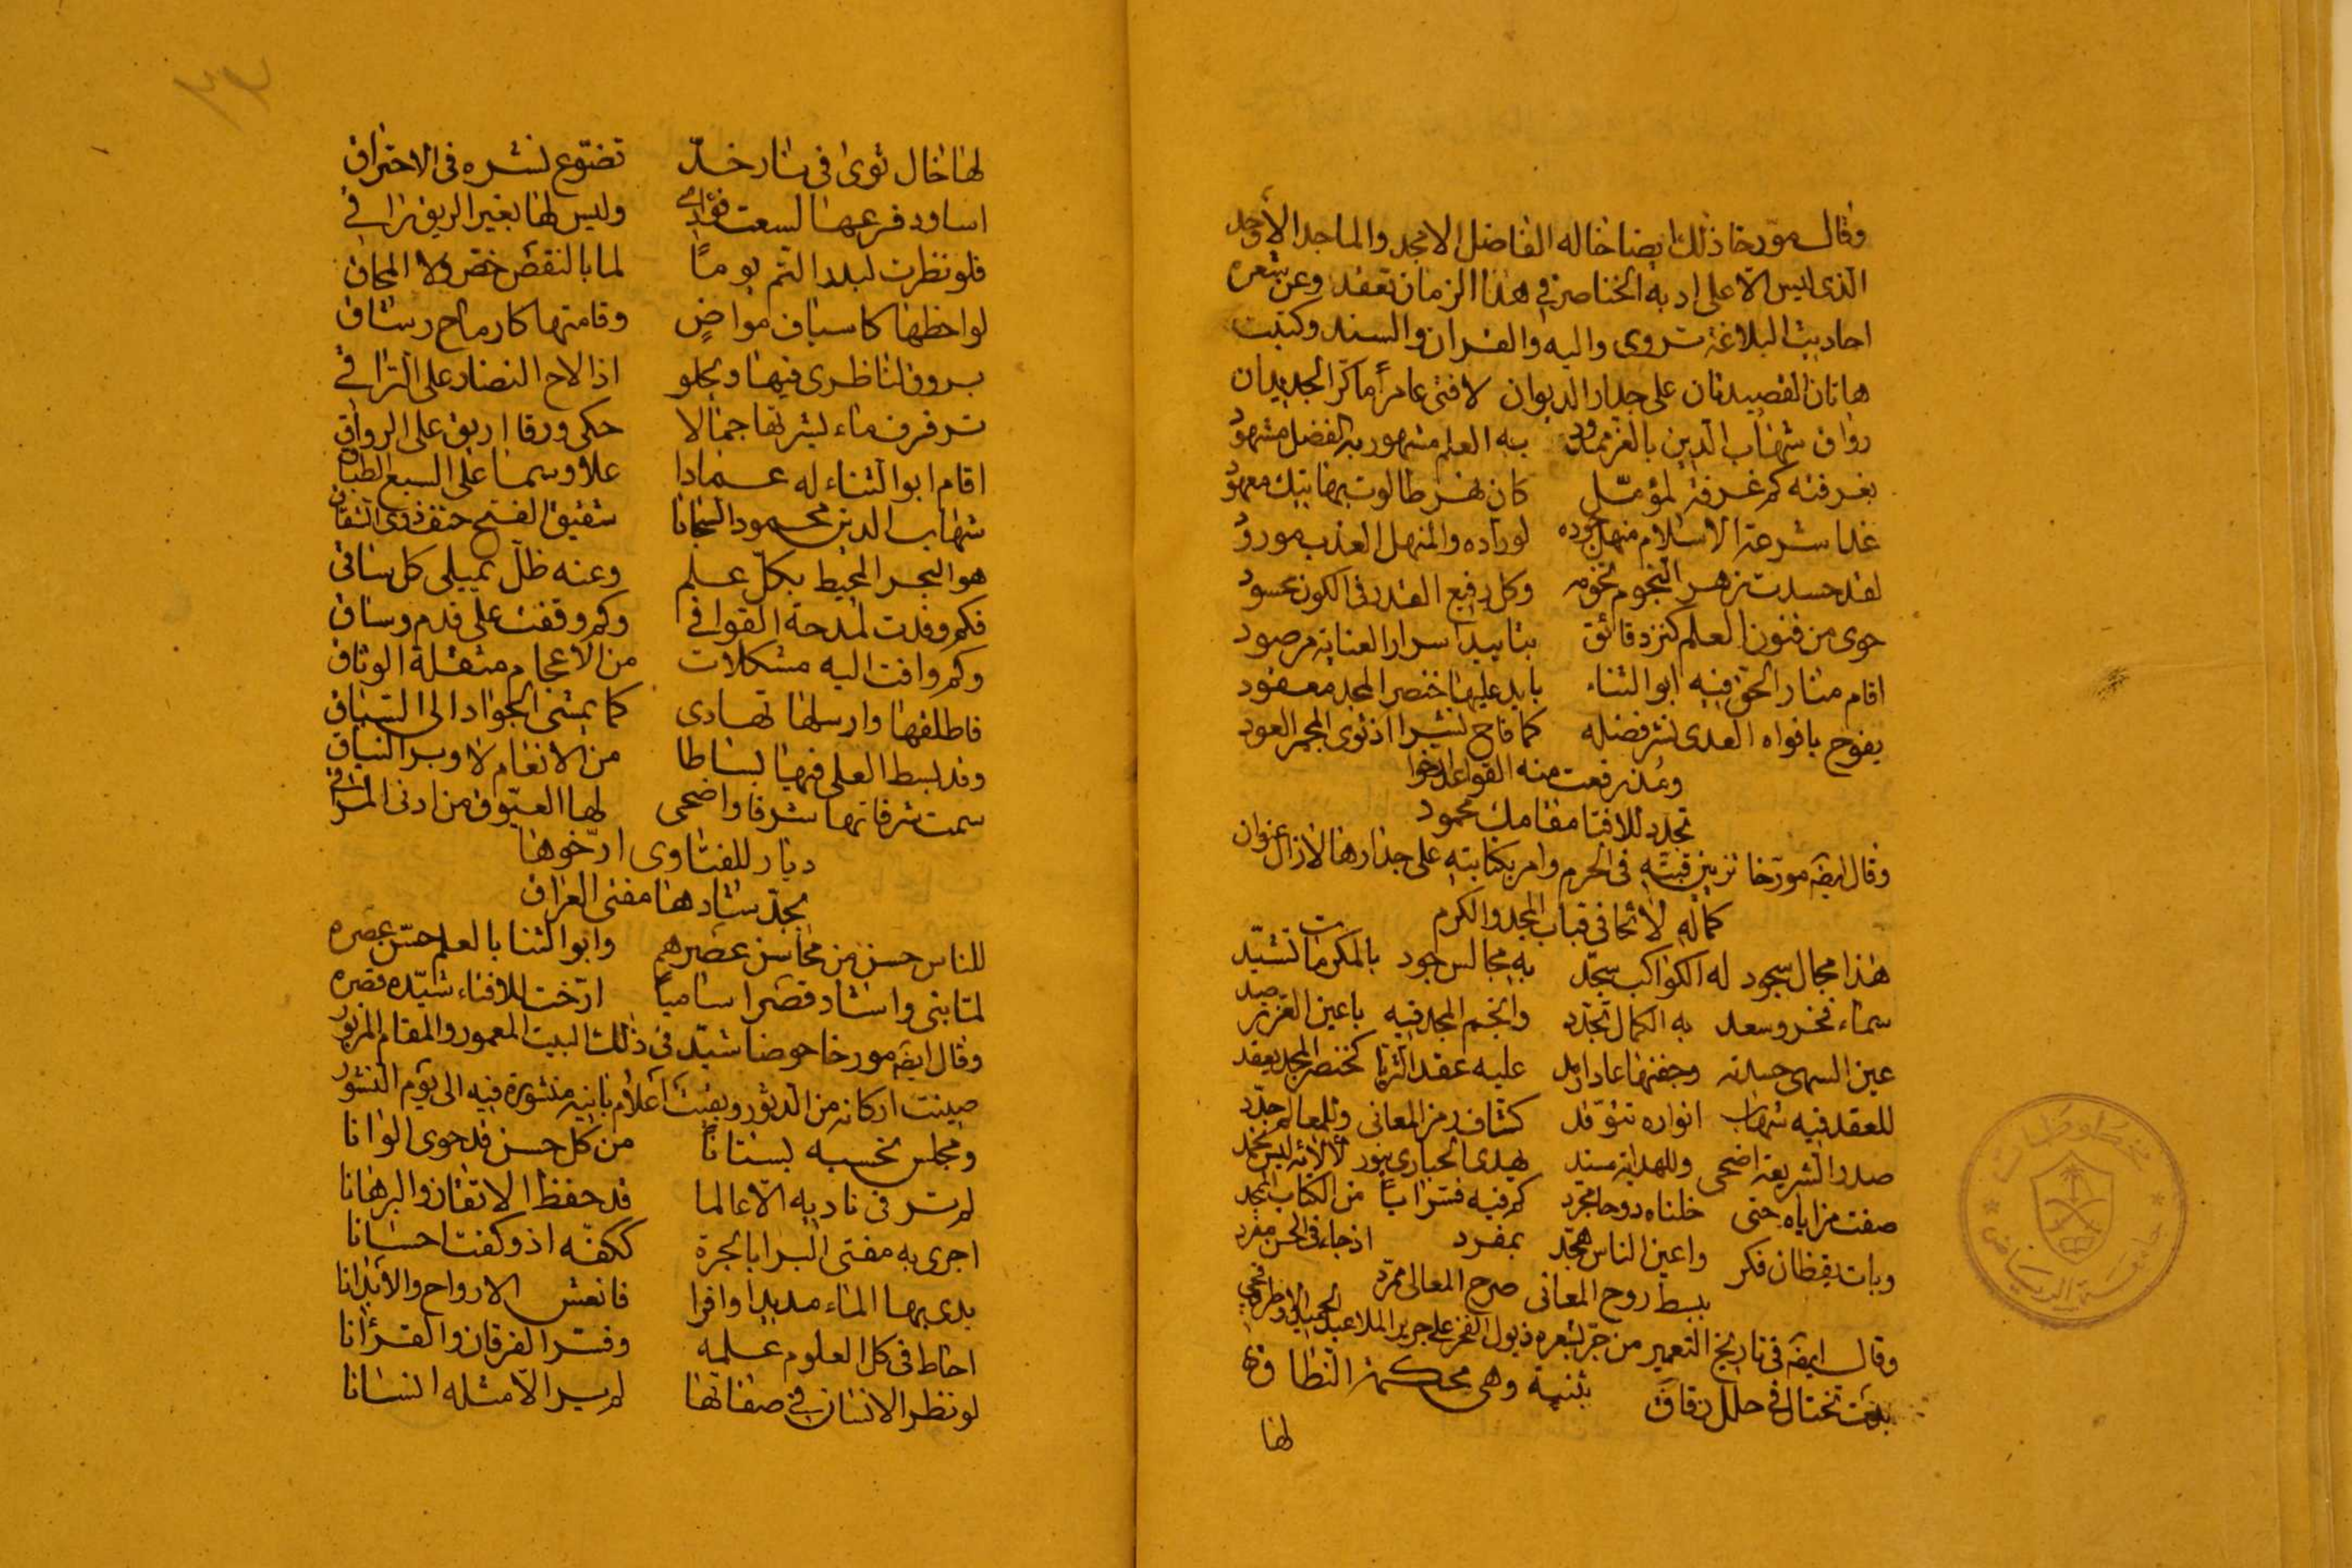 وقال مورخا ذلك ايضا خاله الفاضل الامجد والماجد الأوحد
الذي ليس الا على ادبه الخناصر في هذا الزمان تعقد وعن شعره
احاديث البلاغة تروى واليه والقران والسند وكتبت
هاتان القصيدتان على جدار الديوان لا فتى عامرا ما كر الجديدان
رواق شهاب الدين بالعز ممدود به العلم مشهور به الفضل مشهود
بغرفته كم غرفة لمؤمل كان نهر طالوت بهاتيك معهود
غدا شرعة الاسلام منهل جوده لوراده والمنهل العذب مورود
لقد حسدت زهر النجوم نجومه وكل رفيع القدر في الكون محسود
حوى من فنون العلم كنز دقائق بتاييد اسرار العناية مرصود
اقام منار الحق فيه ابو الثناء بايد عليها خنصر المجد معقود
يفوح بافواه العدى نشر فضله كما فاح نشرا اذ ثوى المجمر العود
ومذ رفعت منه القواعد ارخوا
تجدد للافتا مقامك محمود
وقال ايضه مورخا تزيين قبته في الحرم وامر بكتابته على جدارها لازال عنوان
كماله لائحا في قباب المجد والكرم
هذا مجال سجود له الكواكب سجد به مجالس جود بالمكرمات تشيد
سماء فخر وسعد به الكمال تجدد وانجم المجد فيه باعين العز ترصد
عين السهى حسدته وجفنها عاد ارمد عليه عقد الثريا كخنصر المجد يعقد
للعقد فيه شهاب انواره تتوقد كشاف رمز المعاني وللمعالم جدد
صدر الشريعة اضحى وللهداية مسند يهدي الحيارى بنور لألائه ليس يخمد
صفت مزاياه حتى خلناه روحا مجرد كم فيه فسر آيا من الكتاب الممجد
وبات يقظان فكر واعين الناس هجد بمفرد اذ جاء في الحسن مفرد
ببسط روح المعاني صرح المعالي ممرد
وقال ايضه في تاريخ التعمير من جر بشعره ذيول الفخر على جرير الملا عبد الحميد
بدت تختال في حلل رقاق بثنية وهي محكمة النطاق
لها
لها خال ثوى في نار خد تضوع نشره في الاحتراق
اساود فرعها لسعت فؤادي وليس لها بغير الريق راقي
فلو نظرت لبدر التم يوما لما بالنقص خص ولا المحاق
لواحظها كاسياف مواض وقامتها كارماح رشاق
يروق لناظري فيها ويحلو اذا لاح النضار على التراقي
ترقرق ماء بشرتها جمالا حكى ورقا اريق على الرواق
اقام ابو الثناء له عمادا علا وسما على السبع الطباق
شهاب الدين محمود السجايا شقيق الفتح حتف ذوى الشقاق
هو البحر المحيط بكل علم وعنه ظل يميلي كل ساقي
فكم وفدت لمدحة القوافي وكم وقفت على قدم وساق
وكم وافت اليه مشكلات من الاعجام مثقلة الوثاق
فاطلقها وارسلها تهادى كما يمشي الجواد الى السباق
وقد بسط العلى فيها بساطا من الانعام لا وبر النياق
سمت شرفاتها شرفا واضحى لها العيوق من ادنى المراقي
ديار للفتاوى ارخوها
مجد شادها مفتي العراق
للناس حسن من محاسن عصرهم وابو الثنا بالعلم حسن عصره
لما بنى واشاد قصرا ساميا ارخت للافتاء شيده قصره
وقال ايضه مورخا حوضا شيد في ذلك البيت المعمور والمقام المزبور
صينت اركانه من الدثور وبقيت اعلام بانيه منشورة فيه الى يوم النشور
ومجلس تحسبه بستانا من كل حسن قد حوى الوانا
لم تر في ناديه الا عالما قد حفظ الاتقان والبرهانا
اجرى به مفتي البرايا بالجرة ككفه اذ وكفت احسانا
يدى بها الماء مديدا وافرا فانعش الارواح والابدانا
احاط في كل العلوم علمه وفسر الفرقان والقرأنا
لو نظر الانسان في صفاتها لم ير الا مثله انسانا
جامعة الرياض
مخطوطات